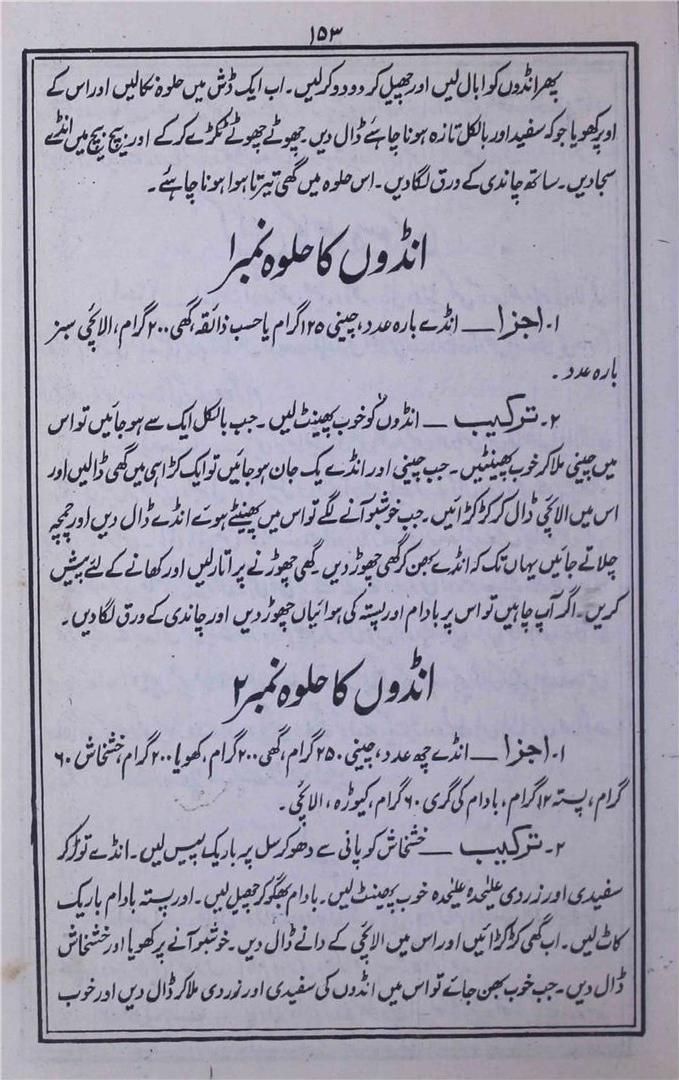 ۱۵۳
پھر انڈوں کو ابال لیں اور چھیل کر دو دو کر لیں۔ اب ایک ڈش میں حلوہ نکالیں اور اس کے
اوپر کھویا جو کہ سفید اور بالکل تازہ ہونا چاہئے ڈال دیں۔ چھوٹے چھوٹے ٹکڑے کر کے اور بیچ بیچ میں انڈے
سجا دیں۔ ساتھ چاندی کے ورق لگا دیں۔ اس حلوہ میں گھی تیرتا ہوا ہونا چاہئے۔
انڈوں کا حلوہ نمبر ۱
۱۔ اجزا — انڈے بارہ عدد، چینی ۱۲۵ گرام یا حسب ذائقہ، گھی ۲۰۰ گرام، الائچی سبز
بارہ عدد۔
۲۔ ترکیب — انڈوں کو خوب پھینٹ لیں۔ جب بالکل ایک سے ہو جائیں تو اس
میں چینی ملا کر خوب پھینٹیں۔ جب چینی اور انڈے یک جان ہو جائیں تو ایک کڑاہی میں گھی ڈالیں اور
اس میں الائچی ڈال کر کڑکڑائیں۔ جب خوشبو آنے لگے تو اس میں پھینٹے ہوئے انڈے ڈال دیں اور چمچہ
چلاتے جائیں یہاں تک کہ انڈے بھن کر گھی چھوڑ دیں۔ گھی چھوڑنے پر اتار لیں اور کھانے کے لئے پیش
کریں۔ اگر آپ چاہیں تو اس پر بادام اور پستہ کی ہوائیاں چھوڑ دیں اور چاندی کے ورق لگا دیں۔
انڈوں کا حلوہ نمبر ۲
۱۔ اجزا — انڈے چھ عدد، چینی ۲۵۰ گرام، گھی ۲۰۰ گرام، کھویا ۲۰۰ گرام، خشخاش ۶۰
گرام، پستہ ۱۲ گرام، بادام کی گری ۶۰ گرام، کیوڑہ، الائچی۔
۲۔ ترکیب — خشخاش کو پانی سے دھو کر سل پر باریک پیس لیں۔ انڈے توڑ کر
سفیدی اور زردی علیٰحدہ علیٰحدہ خوب پھینٹ لیں۔ بادام بھگو کر چھیل لیں۔ اور پستہ بادام باریک
کاٹ لیں۔ اب گھی کڑکڑائیں اور اس میں الائچی کے دانے ڈال دیں۔ خوشبو آنے پر کھویا اور خشخاش
ڈال دیں۔ جب خوب بھن جائے تو اس میں انڈوں کی سفیدی اور زردی ملا کر ڈال دیں اور خوب